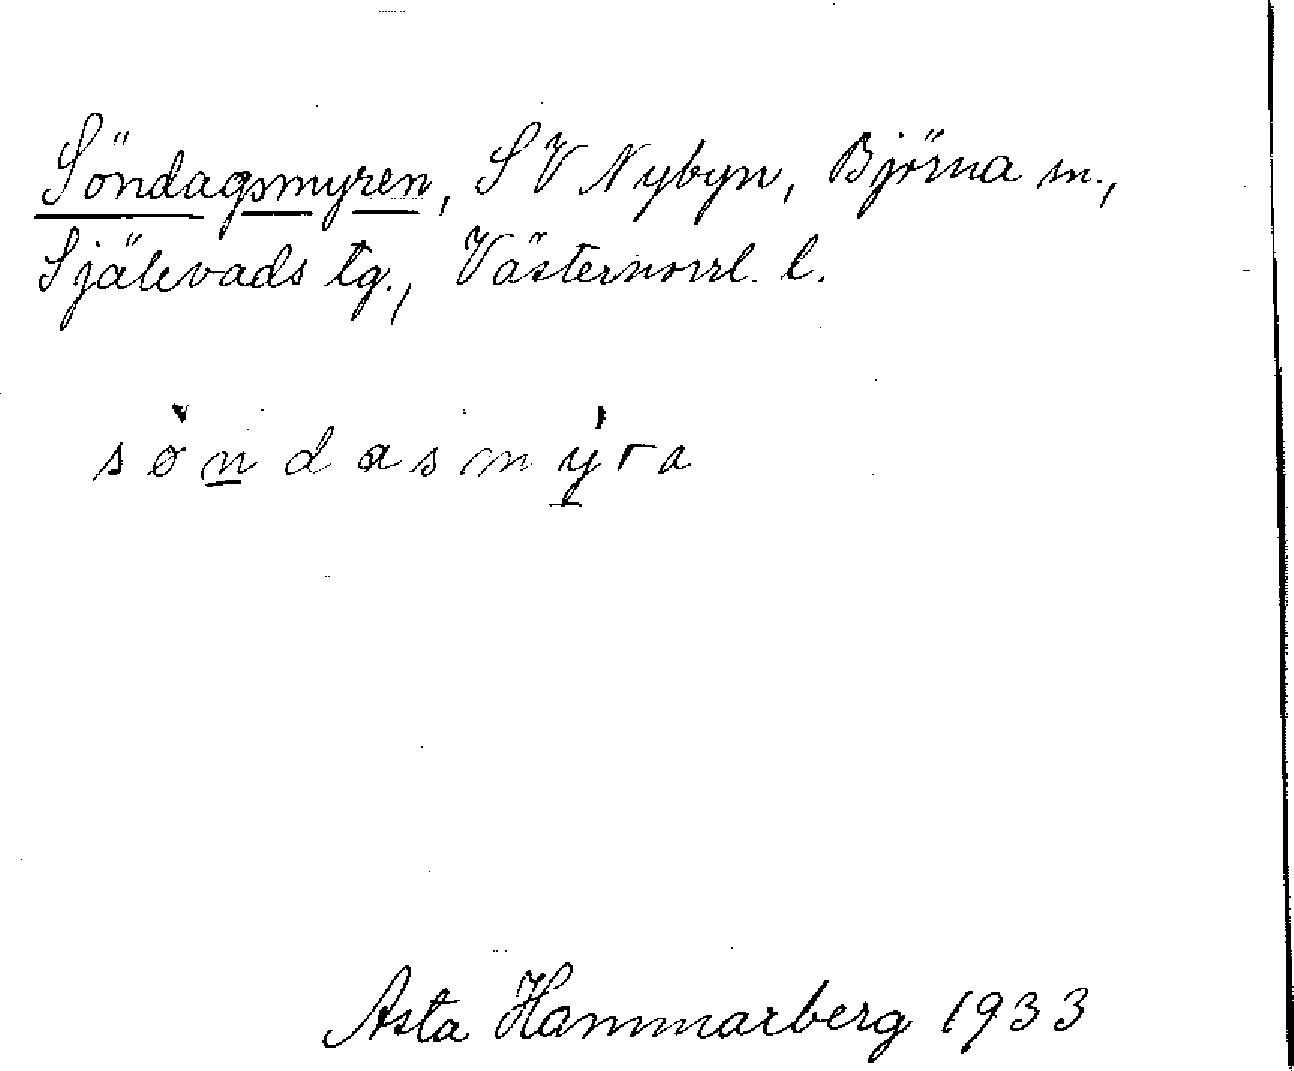 Söndagsmyren, SV Nybyn, Björna sn.,
Själevads tg., Västernorrl. l.
sø̀ndasmýra
Asta Hammarberg 1933